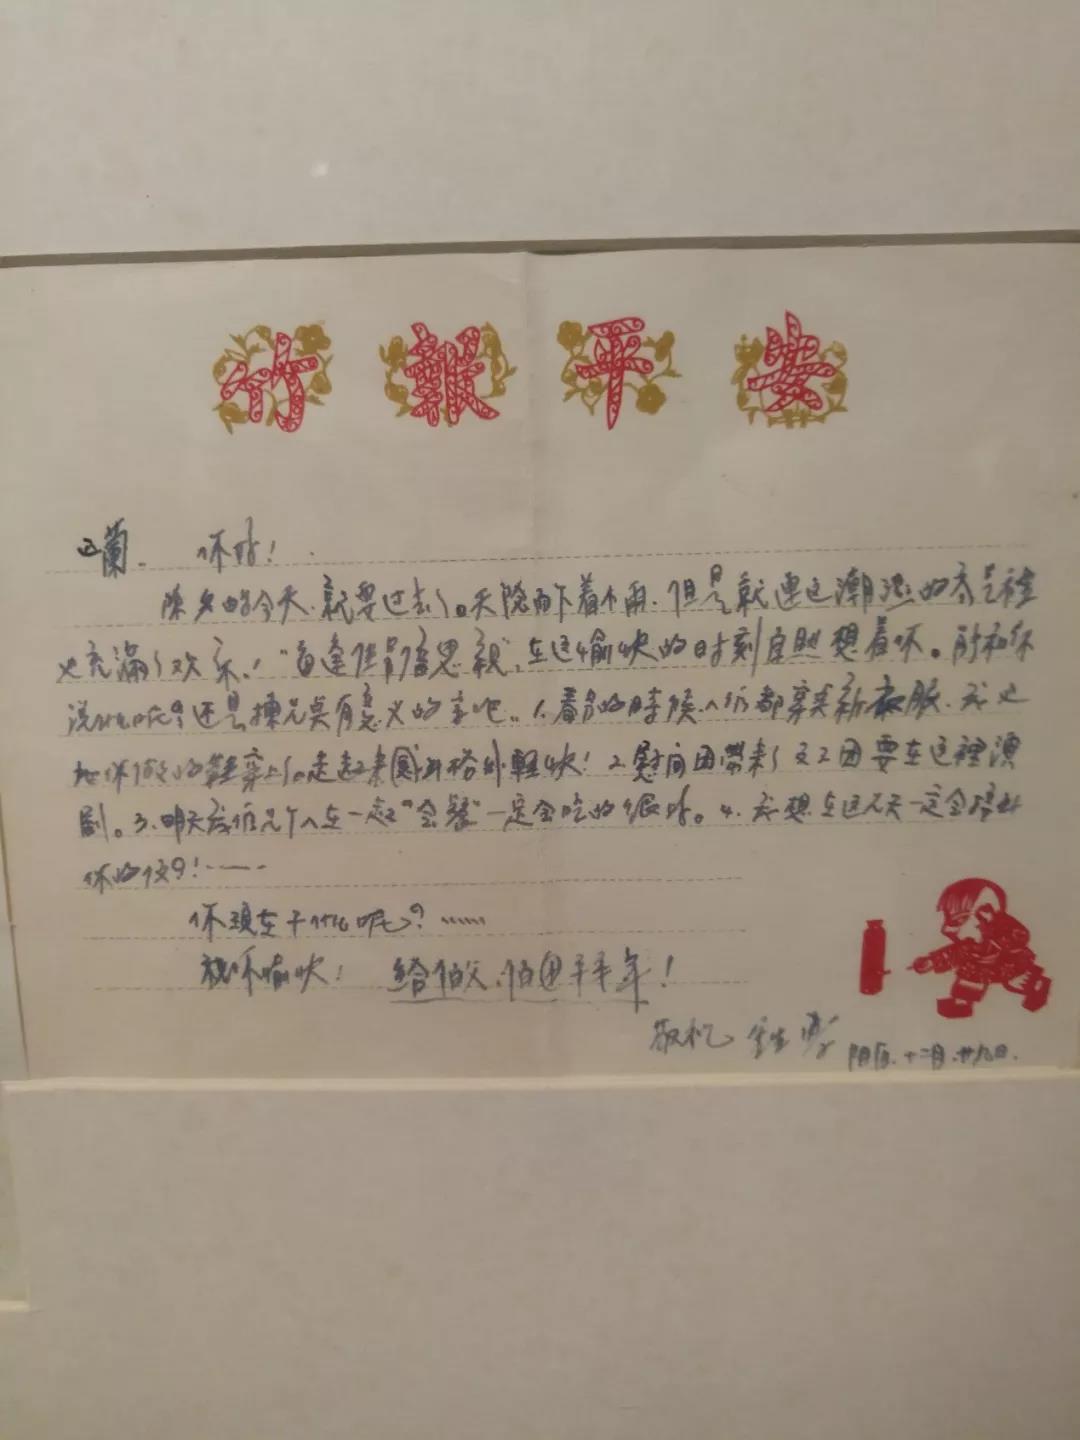 竹報平安
正蘭. 你好!
除夕的今天、就要过去了。天阴而下着小雨、但是就連这潮湿的空气裡
也充滿了欢乐!"每逢佳节倍思親",在这愉快的时刻自然想着你。所和你
说什么呢?还是揀几点有意义的字吧。1.着的時候人们都穿美新衣服、我也
把你做的鞋穿上了。走起来感到格外輕快!2.慰问团帶来了文工团要在这裡演
剧。3、明天我们几个人在一起"会餐"一定会吃的很好。4、我想在这几天一定会接到
你的信!……
你現在干什么呢?……
祝你愉快! 給伯父、伯母拜年!
敬礼
阴历.十二月.廿九日.